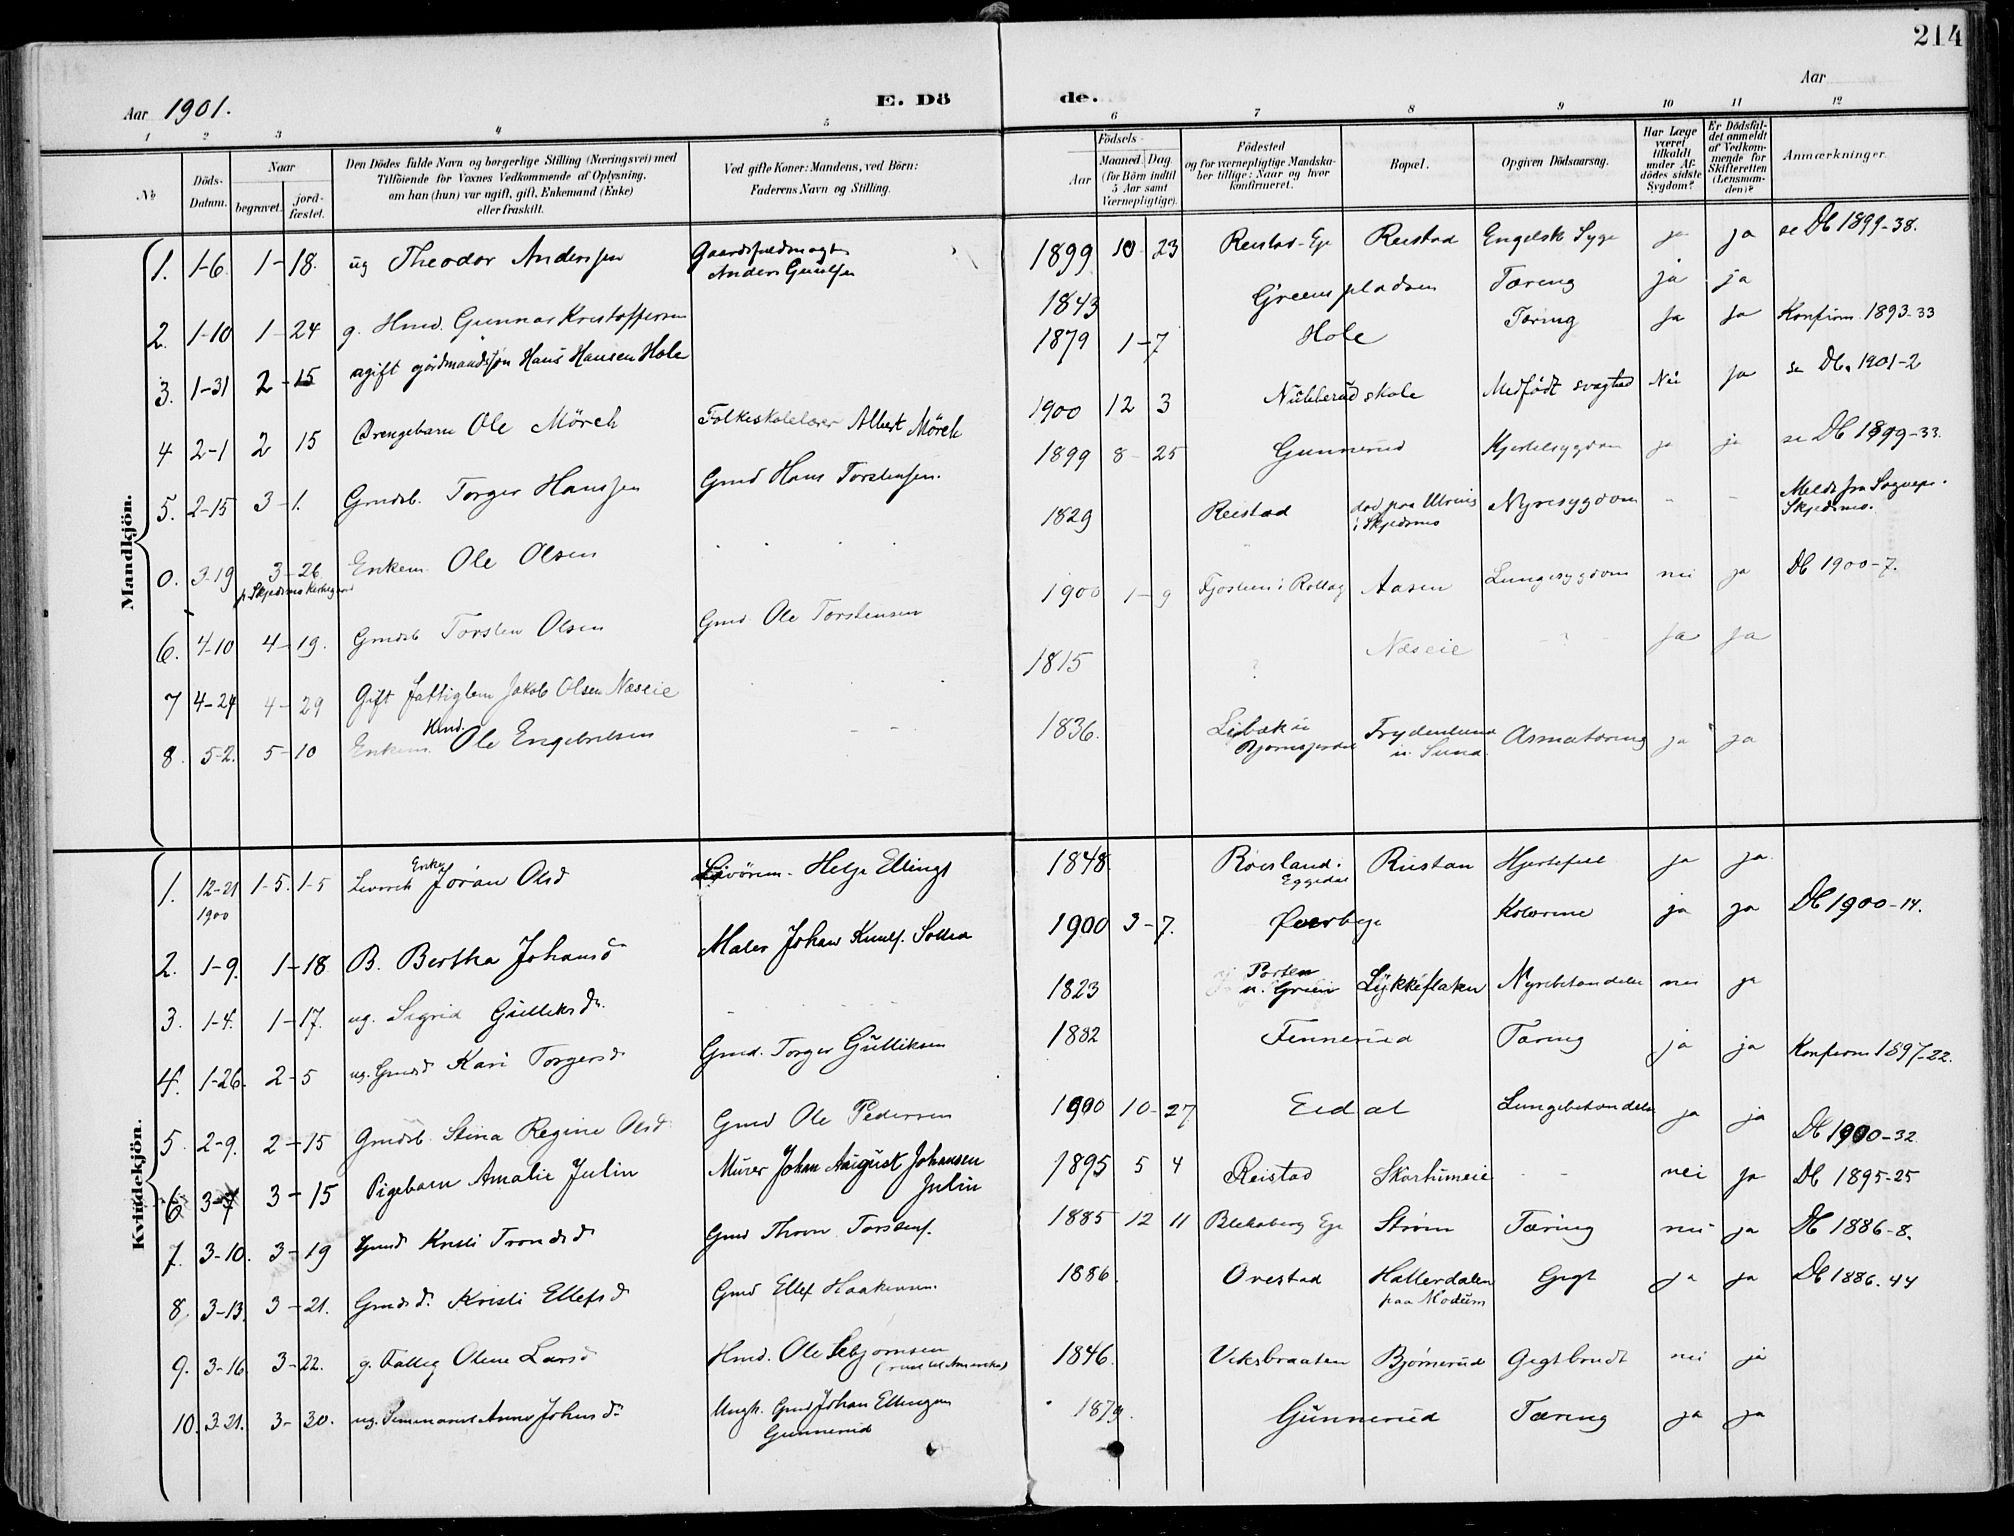 214
Aar 1901.
E. Dö de.
Aar
1 2 3 4 5 6 7 8 9 10 11 12
No
Döds-Datum.
Naar
begravet. jord-fæstet.
Den Dödes fulde Navn og borgerlige Stilling (Næringsvei) med
Tilföiende for Voxnes Vedkommende af Oplysning,
om han (hun) var ugift, gift, Enkemand (Enke)
eller fraskilt.
Ved gifte Koner: Mandens, ved Börn:
Faderens Navn og Stilling.
Födsels-
Aar Maaned. Dag.
(for Börn indtil
5 Aar samt
Værnepligtige).
Födested
og for værnepligtige Mandska-
ber tillige: Naar og hvor
konfirmeret.
Bopæl.
Opgiven Dödsaarsag.
Har Læge
været
tilkaldt
under Af-
dödes sidste
Sygdom?
Er Dödsfal-
det anmeldt
af Vedkom-
mende for
Skifteretten
(Lensman-
den)?
Anmærkninger.
Mandkjön.
1. 1-6 1-18. ug Theodor Anderssen Gaardsfuldmægt Anders Gundsen 1899 10 23 Reistad-Eje Reistad Engelsk Syge ja ja se Db 1899-38.
2. 1-10 1-24 g. Hmd. Gunnar Kristoffersen 1843 Greens pladsen Tæring ja ja
3. 1-31 2-15 ugift gårdmandssøn Hans Hansen Hole 1879 1-7 Hole Tæring ja ja Konfirm. 1893-33
4 2-1 2 15 Drengebarn Ole Mörch Folkeskolelærer Albert Mörch 1900 12 3 Nubberud skole Medfödt svaghed Nei ja se Db. 1901-2
5. 2-15 3-1. Gmdsb. Torger Hanssen Gmd Hans Torstensen. 1899 8-25 Gunnerud Kjertelsygdom ja ja se Db 1899-33.
0. 3-19 3-26 p. Skjedsmo Kirkegaard Enkem. Ole Olsen 1829 Reistad död paa i Skjedsmo Nyresygdom - - Meldt fra Sognepr. Skjedsmo.
6. 4-10 4-19. Gmdsb Torsten Olsen Gmd Ole Torstensen 1900 1-9 i Rollag Aasen Lungesygdom nei ja Db 1900-7.
7 4-24 4-29 Gift fattiglem Jakob Olsen Næseie 1815 ? Næseie - ? - ja ja
8. 5-2. 5-10 Enkem. Hmd. Ole Engebretsen 1836. Frydenlund u. Sund ja ja
Kvindekjön.
1. 12-21 1900 1-5. 1-5 Enke Jöran Olsd Helge Ellings 1848. Roisland. Eggedal Riistan Hjertefeil ja ja
2. 1-9. 1-18 B. Bertha Johansd Maler Johan Knuds. 1900 3-7. Øverby Kolerine ja ja Db 1900-14.
3. 1-4. 1-17. ug. Sigrid Gulliksdr. 1823 Porten u. Green Lykkeflaken Nyrebetændelse nei ja
4. 1-26. 2-5 ug. Gmdsd Kari Torgersd Gmd. Torger Gulliksen 1882 Finnerud Tæring ja ja Konfirm 1897-22.
5. 2-9. 2-15 Gmdsb. Stina Regine Olsd. Gmd Ole Pedersen 1900 10-27 Eidal Lungebetændelse ja ja Db 1900-32
6 3-7 3-15 Pigebarn Amalie Julin Murer Johan August Johansen Julin 1895 5 4 Reistad Skorhumeie - - nei ja Db 1895-25
7. 3-10. 3-19 Gmdsd Kristi Trondsd Gmd Thron Torstens. 1885 12 11 Bleksberg Eje Strøm Tæring nei ja Db 1886-8.
8. 3-13. 3-21. Gmdsd. Kristi Ellefsd Gmd Ellef Haakensen. 1886. Ovestad Hallerdalen paa Modum Gigt ja ja Db 1886.44
9. 3-16. 3-22. g. Fattig Oline Larsd Hmd. Ole (reist til Amerika) 1846. Viksbraaten Björnerud Gigtbrudt nei ja
10. 3-21. 3-30. ug. Anna Johansdr. Ungk. Gmd Johan Ellingsen Gunnerud 1879. Gunnerud Tæring ja ja